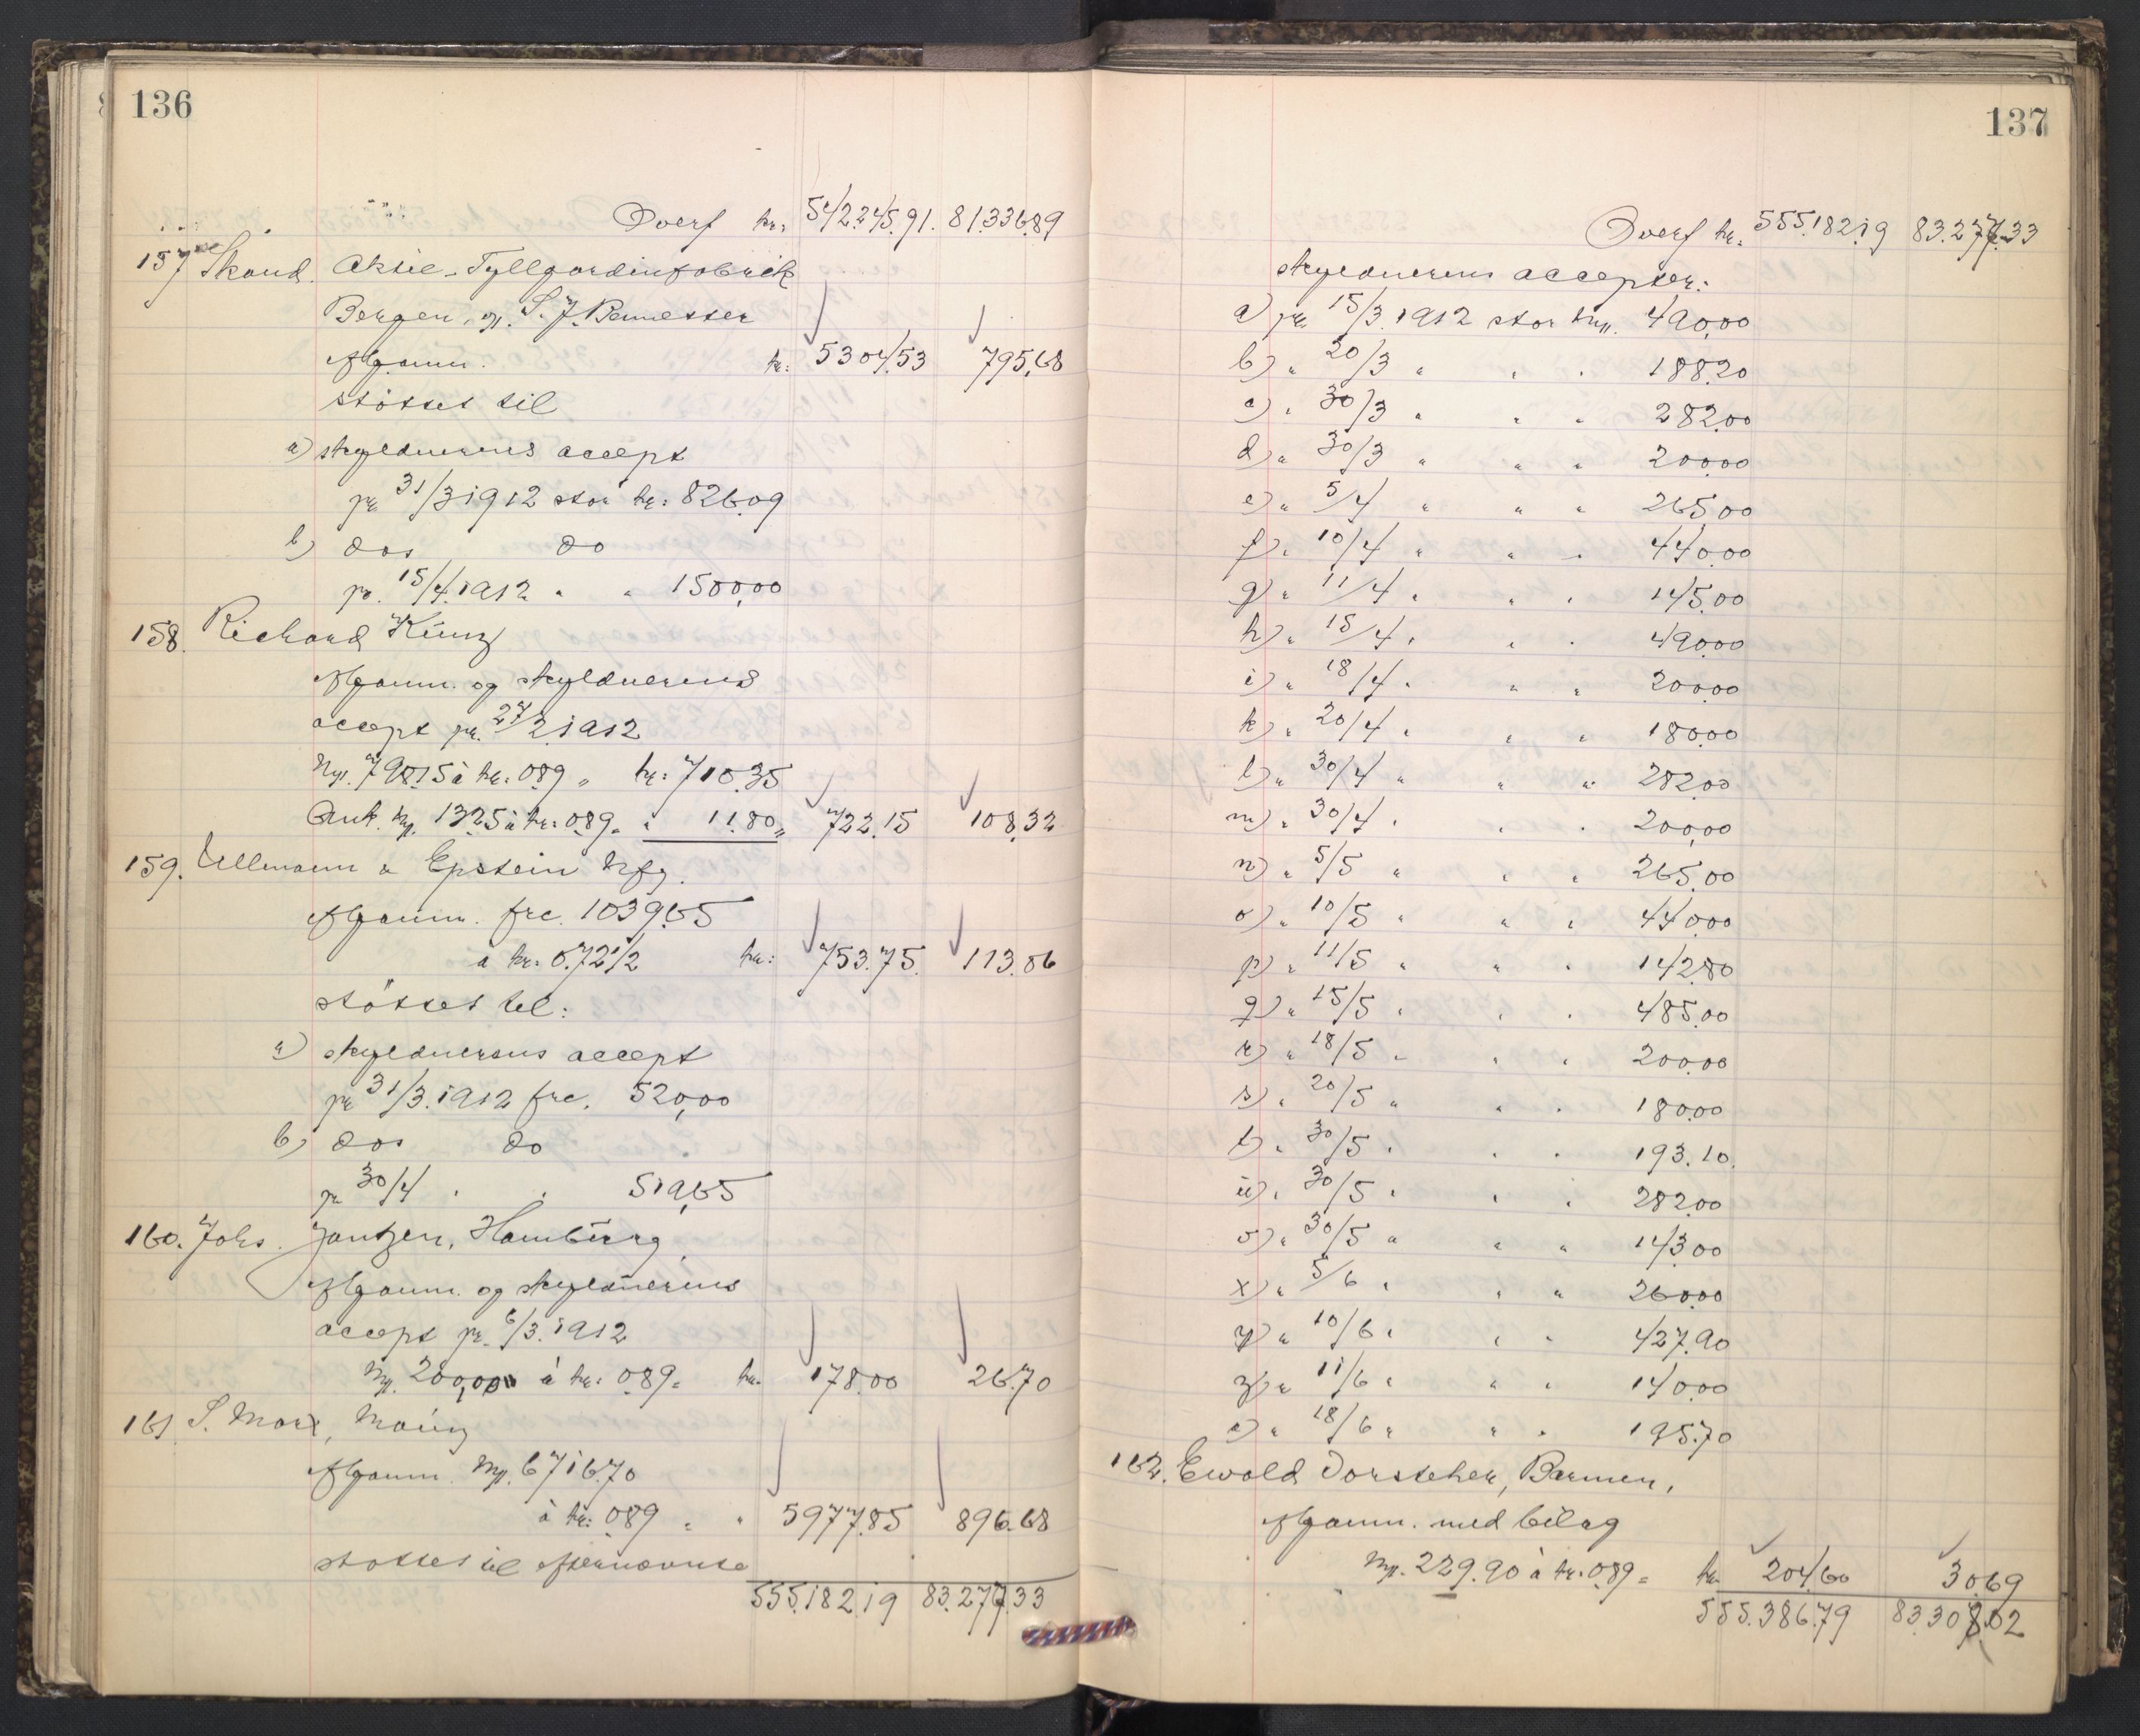 136
Overf kr: 542.245.91. 81.336.89
157 Skand. Aktie-Tyllgardinfabrik
Bergen, v.
Afgjørn. kr: 5304.53 795.68
støttet til
a) skyldnerens accept
pr 31/3 1912 stor kr: 826.09
b) dos do
pr. 15/4.1912 " " 1500,00
158. Richard Künz
og skyldnerens
accept pr. 27/2.1912
à kr: 0.89 " kr: 710.35
13.25 à kr: 0.89 " " 11.80 " 722.15 108.32
159. Ullmann & Epstein
frc. 1039.65
à kr: 0.72 1/2 kr: 753.75. 113.06
støttet til:
a) skyldnerens accept
pr 31/3.1912 frc. 520,00
b) dos do
pr 30/4 " " 519,65
160. Johs. Jantzen, Hamburg
og skyldnerens
accept pr. 6/3.1912
200,00 à kr: 0.89 = kr. 178.00 26.70
161 S. Marx, Mainz
6716.70
à kr: 0.89 = " 5977.85 896.68
støttet til efternævnte
555.182.19 83.277.33
137
Overf kr. 555.182.19 83.277.33
skyldnerens accepter:
a) pr. 15/3.1912 stor 490,00
b) " 20/3 " " " 188.20
c) " 30/3 " " " 282.00
d) " 30/3 " " " 200.00
e) " 5/4 " " " 265.00
f) " 10/4 " " " 440.00
g) " 11/4 " " " 145.00
h) " 15/4 " " " 490.00
i) " 18/4 " " " 200.00
k) " 20/4 " " " 180.00
l) " 30/4 " " " 282.00
m) " 30/4 " " " 200,00
n) " 5/5 " " " 265.00
o) " 10/5 " " " 440.00
p) " 11/5 " " " 142.80
q) " 15/5 " " " 485.00
r) " 18/5 " " " 200.00
s) " 20/5 " " " 180.00
t) " 30/5 " " " 193.10.
u) " 30/5 " " " 282.00
v) " 30/5 " " " 143.00
x) " 5/6 " " " 260.00
y) " 10/6 " " " 427.90
z) " 11/6 " " " 140.00
" 18/6 " " " 195.70
162. Ewald Vorsteher, Barmen,
med bilag
229.90 à kr: 0.89 = kr. 204.60 30.69
555.386.79 83.308.02